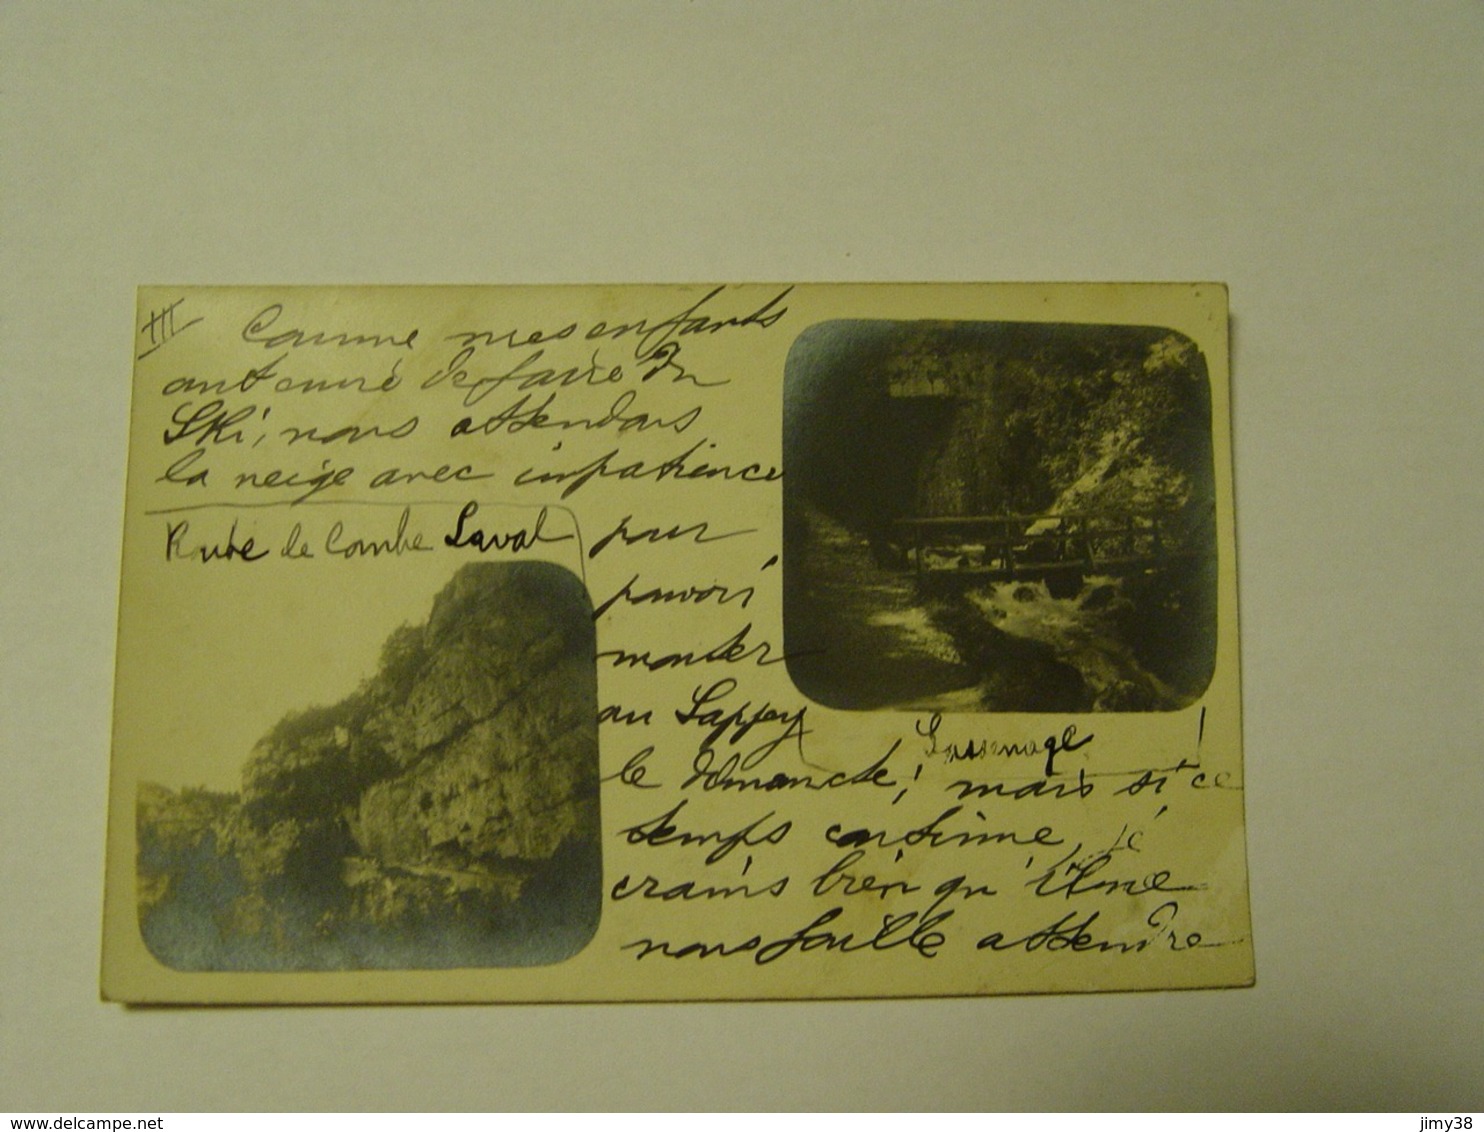 III Comme mes enfants
ont envie de faire du
Ski, nous attendons
la neige avec impatience
Route de Combe Laval
pour
pouvoir
monter
au Sappey
Sassenage
le dimanche, mais si ce
temps continue, je
crains bien qu'il ne
nous faille attendre
delcampe.net
jimy38